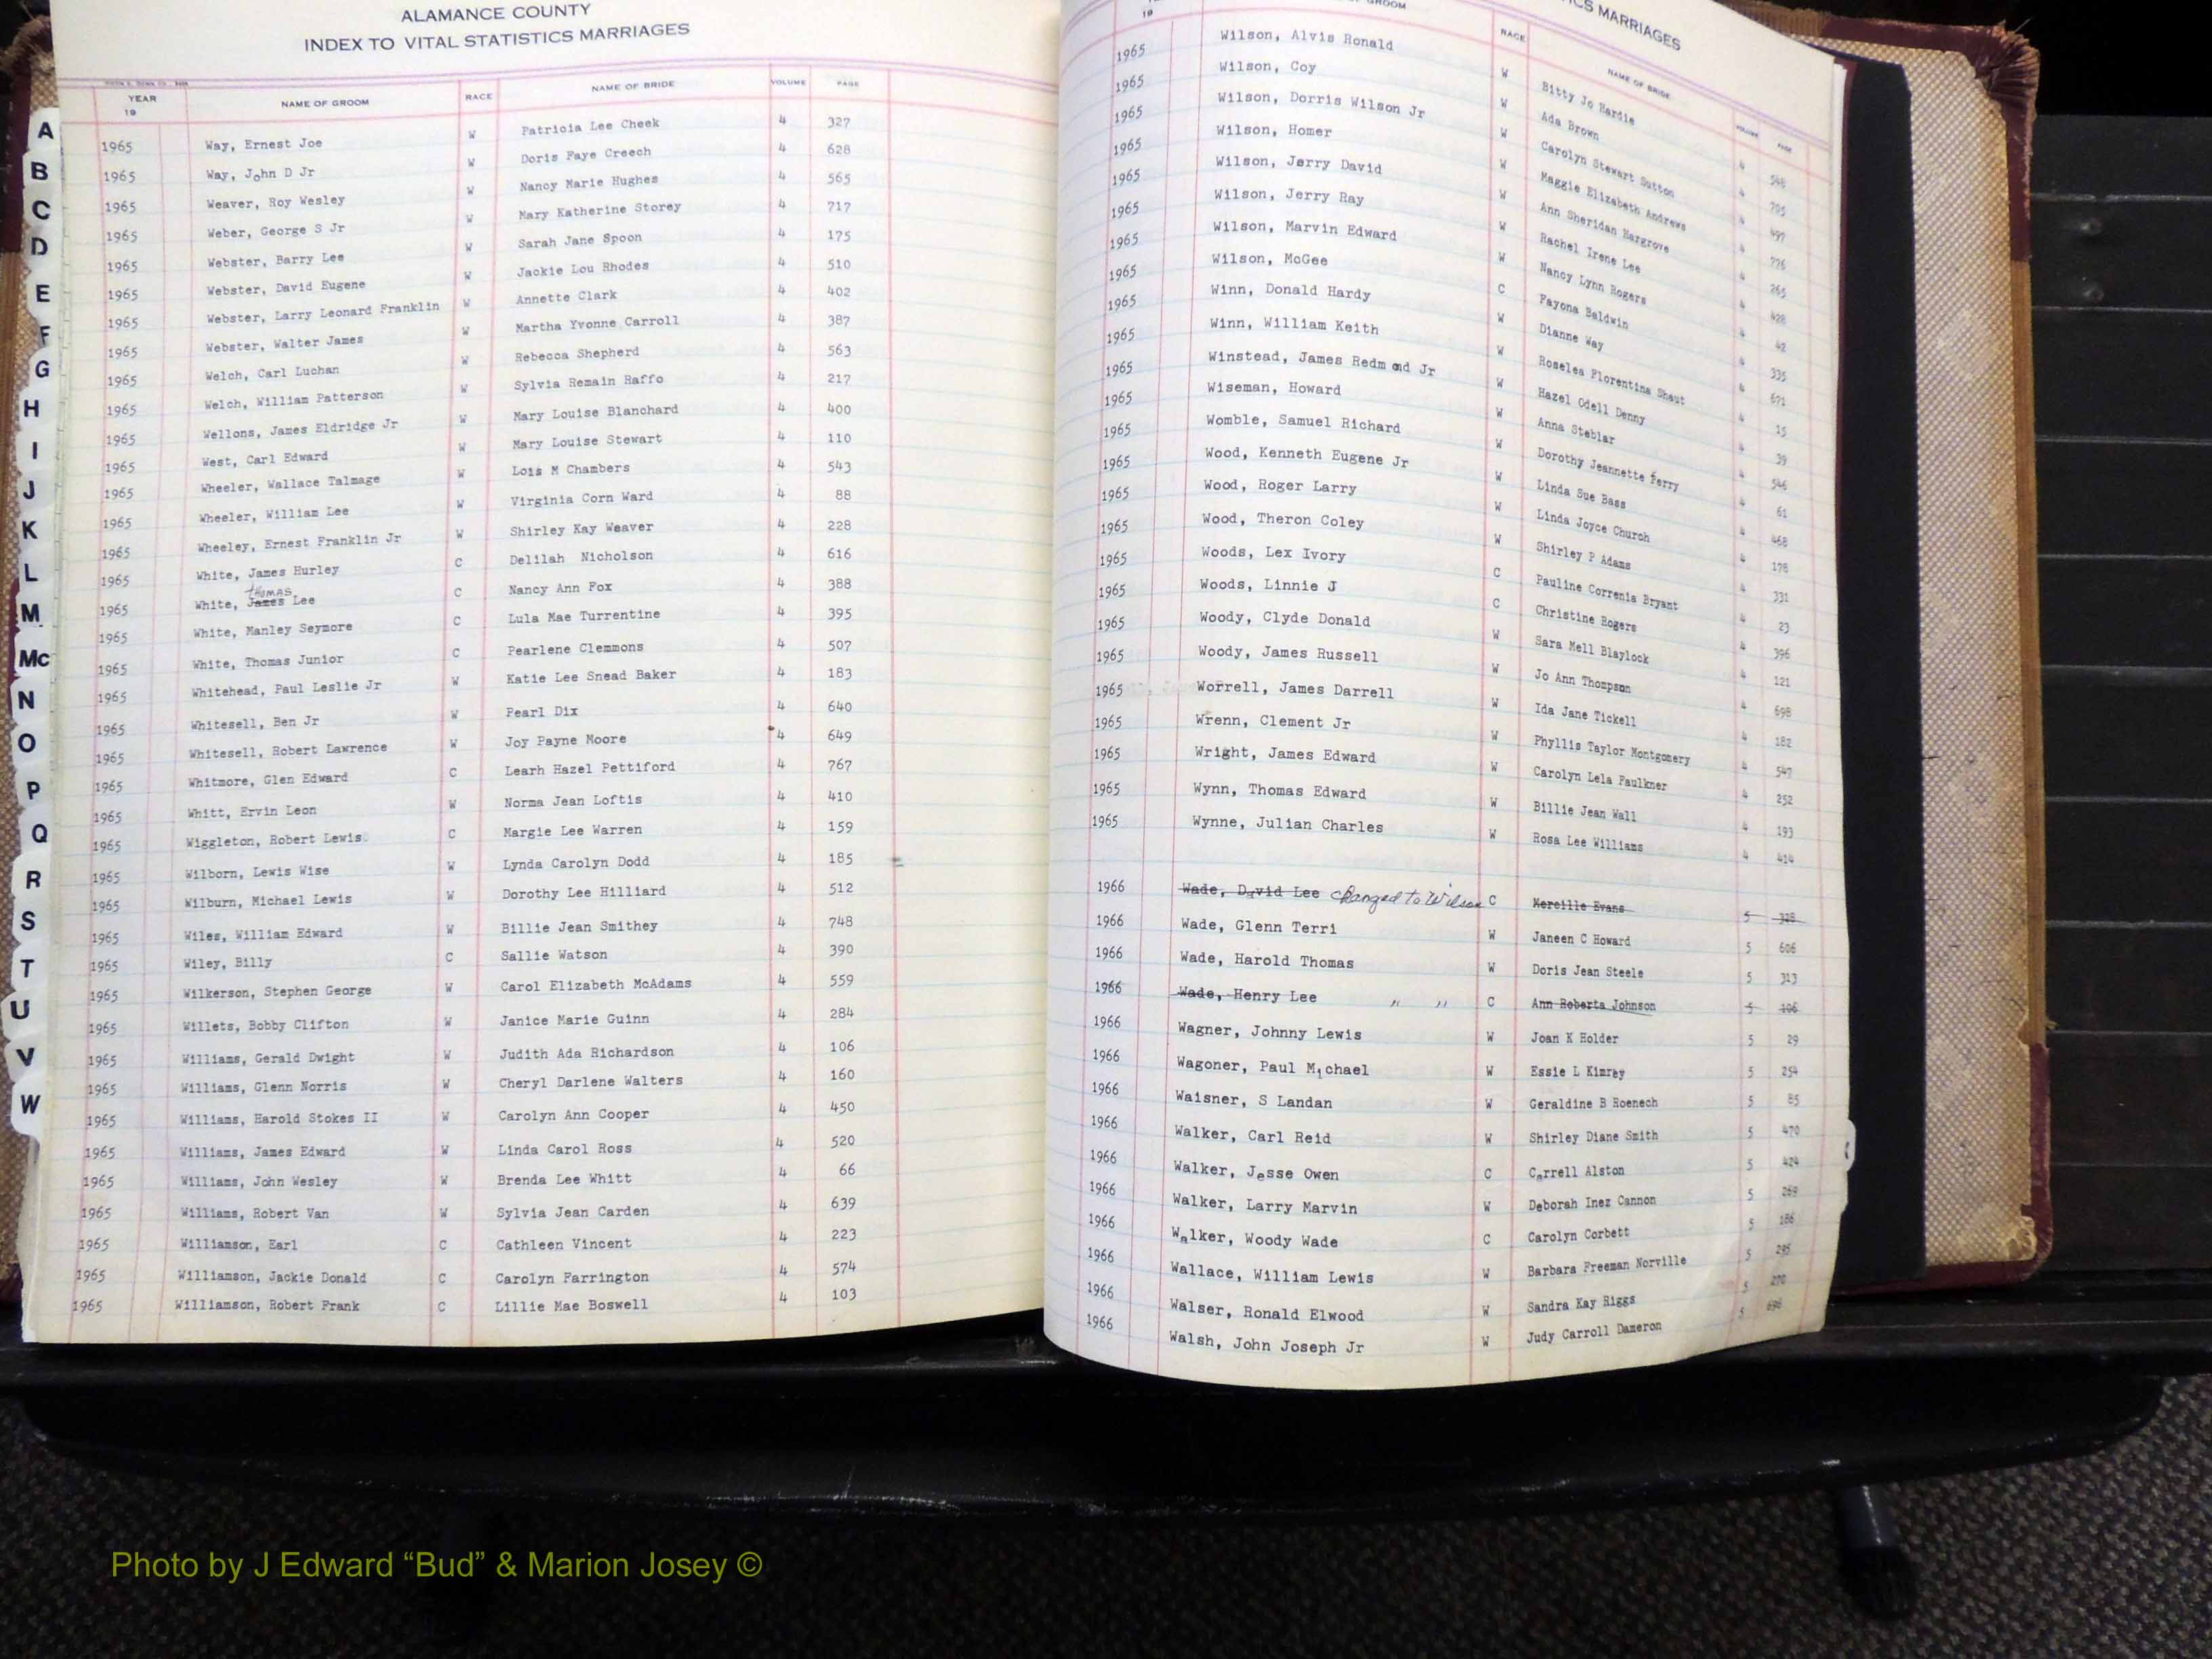 ALAMANCE COUNTY
INDEX TO VITAL STATISTICS MARRIAGES
YEAR 19 NAME OF GROOM RACE NAME OF BRIDE VOLUME PAGE
1965 Way, Ernest Joe W Patricia Lee Cheek 4 327
1965 Way, John D Jr W Doris Faye Creech 4 628
1965 Weaver, Roy Wesley W Nancy Marie Hughes 4 565
1965 Weber, George S Jr W Mary Katherine Storey 4 717
1965 Webster, Barry Lee W Sarah Jane Spoon 4 175
1965 Webster, David Eugene W Jackie Lou Rhodes 4 510
1965 Webster, Larry Leonard Franklin W Annette Clark 4 402
1965 Webster, Walter James W Martha Yvonne Carroll 4 387
1965 Welch, Carl Luchan W Rebecca Shepherd 4 563
1965 Welch, William Patterson W Sylvia Remain Raffo 4 217
1965 Wellons, James Eldridge Jr W Mary Louise Blanchard 4 400
1965 West, Carl Edward W Mary Louise Stewart 4 110
1965 Wheeler, Wallace Talmage W Lois M Chambers 4 543
1965 Wheeler, William Lee W Virginia Corn Ward 4 88
1965 Wheeley, Ernest Franklin Jr W Shirley Kay Weaver 4 228
1965 White, James Hurley C Delilah Nicholson 4 616
thomas
1965 White, James Lee C Nancy Ann Fox 4 388
1965 White, Manley Seymore C Lula Mae Turrentine 4 395
1965 White, Thomas Junior C Pearlene Clemmons 4 507
1965 Whitehead, Paul Leslie Jr W Katie Lee Snead Baker 4 183
1965 Whitesell, Ben Jr W Pearl Dix 4 640
1965 Whitesell, Robert Lawrence W Joy Payne Moore 4 649
1965 Whitmore, Glen Edward C Learh Hazel Pettiford 4 767
1965 Whitt, Ervin Leon W Norma Jean Loftis 4 410
1965 Wiggleton, Robert Lewis C Margie Lee Warren 4 159
1965 Wilborn, Lewis Wise W Lynda Carolyn Dodd 4 185
1965 Wilburn, Michael Lewis W Dorothy Lee Hilliard 4 512
1965 Wiles, William Edward W Billie Jean Smithey 4 748
1965 Wiley, Billy C Sallie Watson 4 390
1965 Wilkerson, Stephen George W Carol Elizabeth McAdams 4 559
1965 Willets, Bobby Clifton W Janice Marie Guinn 4 284
1965 Williams, Gerald Dwight W Judith Ada Richardson 4 106
1965 Williams, Glenn Norris W Cheryl Darlene Walters 4 160
1965 Williams, Harold Stokes II W Carolyn Ann Cooper 4 450
1965 Williams, James Edward W Linda Carol Ross 4 520
1965 Williams, John Wesley W Brenda Lee Whitt 4 66
1965 Williams, Robert Van W Sylvia Jean Carden 4 639
1965 Williamson, Earl C Cathleen Vincent 4 223
1965 Williamson, Jackie Donald C Carolyn Farrington 4 574
1965 Williamson, Robert Frank C Lillie Mae Boswell 4 103
A
B
C
D
E
F
G
H
I
J
K
L
M
Mc
N
O
P
Q
R
S
T
U
V
W
MARRIAGES
19 GROOM RACE NAME OF BRIDE VOLUME PAGE
1965 Wilson, Alvis Ronald W Bitty Jo Hardie 4 548
1965 Wilson, Coy W Ada Brown 4 705
1965 Wilson, Dorris Wilson Jr W Carolyn Stewart Sutton 4 497
1965 Wilson, Homer W Maggie Elizabeth Andrews 4 776
1965 Wilson, Jerry David W Ann Sheridan Hargrove 4 265
1965 Wilson, Jerry Ray W Rachel Irene Lee 4 428
1965 Wilson, Marvin Edward W Nancy Lynn Rogers 4 42
1965 Wilson, McGee C Fayona Baldwin 4 335
1965 Winn, Donald Hardy W Dianne Way 4 671
1965 Winn, William Keith W Roselea Florentina Shaut 4 15
1965 Winstead, James Redmond Jr W Hazel Odell Denny 4 39
1965 Wiseman, Howard W Anna Steblar 4 546
1965 Womble, Samuel Richard W Dorothy Jeannette Perry 4 61
1965 Wood, Kenneth Eugene Jr W Linda Sue Bass 4 468
1965 Wood, Roger Larry W Linda Joyce Church 4 178
1965 Wood, Theron Coley W Shirley P Adams 4 331
1965 Woods, Lex Ivory C Pauline Correnia Bryant 4 23
1965 Woods, Linnie J C Christine Rogers 4 396
1965 Woody, Clyde Donald W Sara Mell Blaylock 4 121
1965 Woody, James Russell W Jo Ann Thompson 4 698
1965 Worrell, James Darrell W Ida Jane Tickell 4 182
1965 Wrenn, Clement Jr W Phyllis Taylor Montgomery 4 547
1965 Wright, James Edward W Carolyn Lela Faulkner 4 252
1965 Wynn, Thomas Edward W Billie Jean Wall 4 193
1965 Wynne, Julian Charles W Rosa Lee Williams 4 414
1966 Wade, David Lee changed to Wilson C Mereille Evans 5 328
1966 Wade, Glenn Terri W Janeen C Howard 5 606
1966 Wade, Harold Thomas W Doris Jean Steele 5 313
1966 Wade, Henry Lee " " C Ann Roberta Johnson 5 106
1966 Wagner, Johnny Lewis W Joan K Holder 5 29
1966 Wagoner, Paul Michael W Essie L Kimrey 5 254
1966 Waisner, S Landan W Geraldine B Roenech 5 85
1966 Walker, Carl Reid W Shirley Diane Smith 5 470
1966 Walker, Jesse Owen C Carrell Alston 5 424
1966 Walker, Larry Marvin W Deborah Inez Cannon 5 269
1966 Walker, Woody Wade C Carolyn Corbett 5 186
1966 Wallace, William Lewis W Barbara Freeman Norville 5 295
1966 Walser, Ronald Elwood W Sandra Kay Riggs 5 270
1966 Walsh, John Joseph Jr W Judy Carroll Dameron 5 696
Photo by J Edward “Bud” & Marion Josey ©